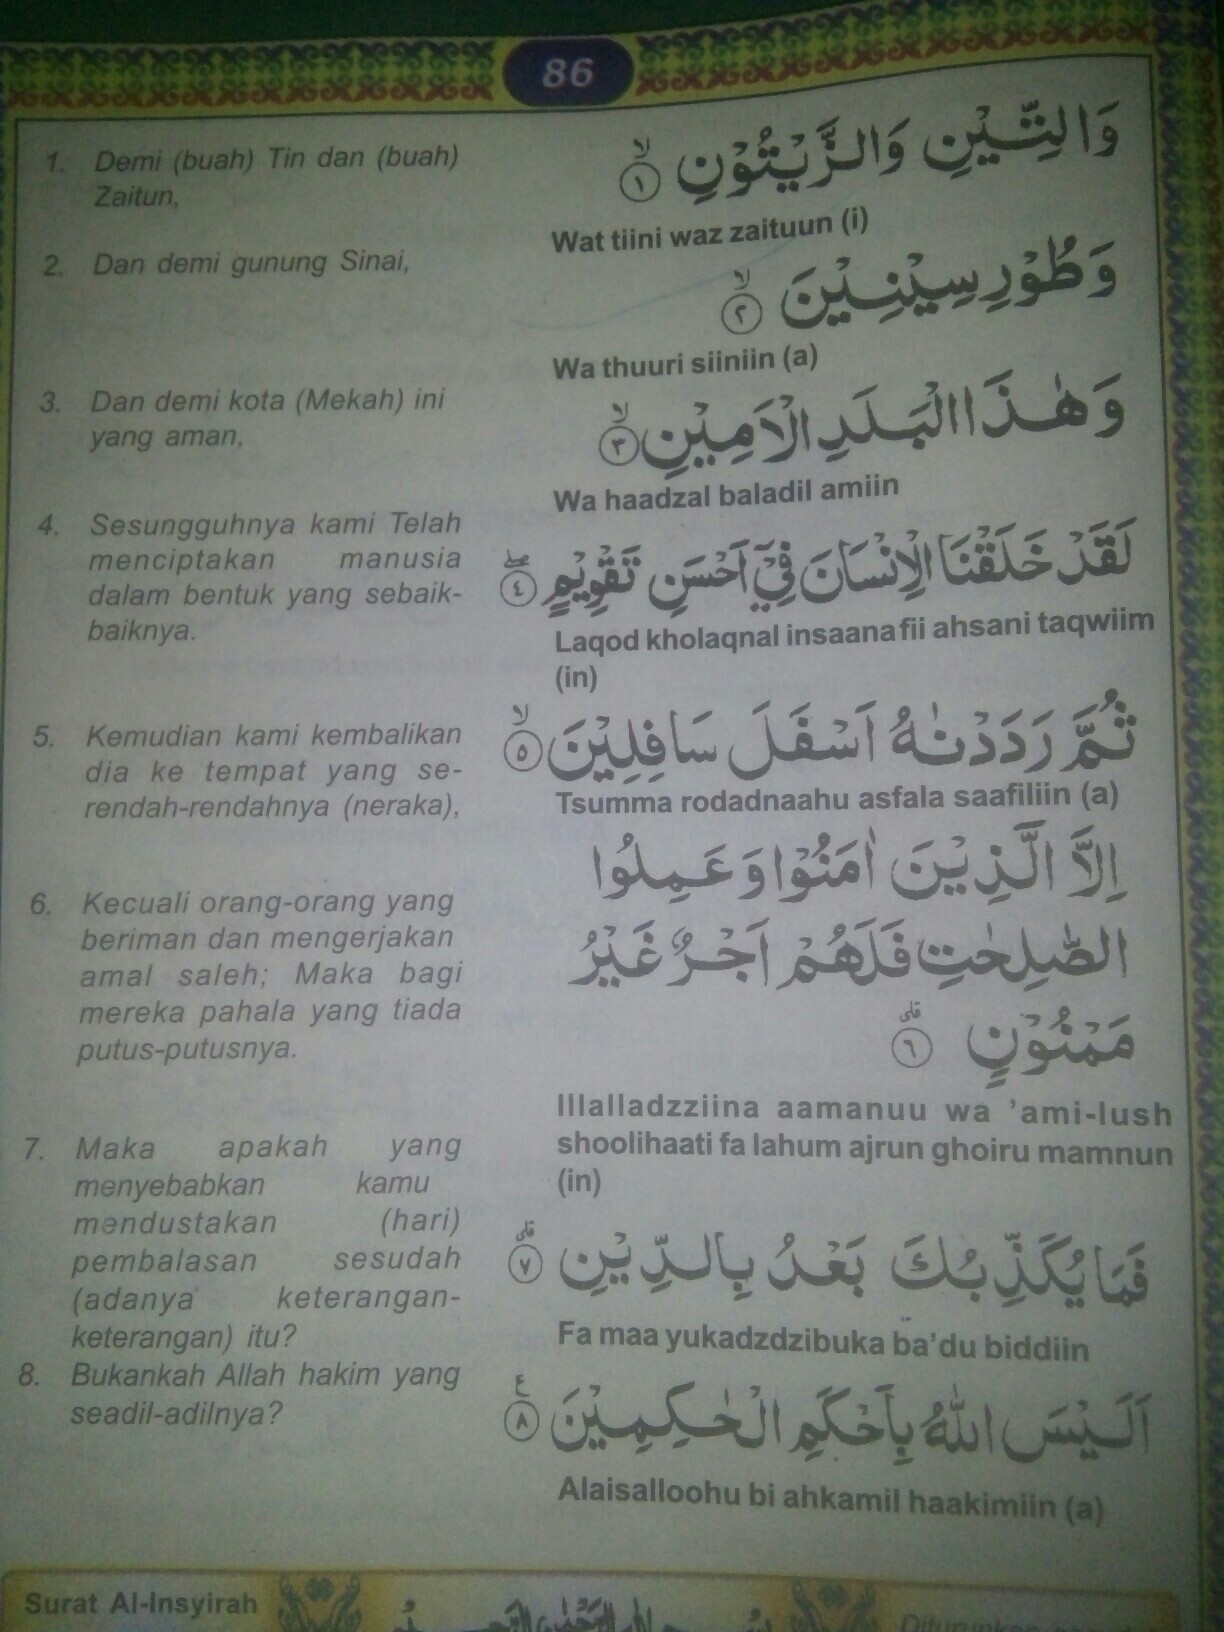 86
1. Demi (buah) Tin dan (buah)
Zaitun,
وَالتِّيْنِ وَالزَّيْتُوْنِ ۙ ١
Wat tiini waz zaituun (i)
2. Dan demi gunung Sinai,
وَطُوْرِ سِيْنِيْنَ ۙ ٢
Wa thuuri siiniin (a)
3. Dan demi kota (Mekah) ini
yang aman,
وَهٰذَا الْبَلَدِ الْاَمِيْنِ ۙ ٣
Wa haadzal baladil amiin
4. Sesungguhnya kami Telah
menciptakan manusia
dalam bentuk yang sebaik-
baiknya.
لَقَدْ خَلَقْنَا الْاِنْسَانَ فِيْٓ اَحْسَنِ تَقْوِيْمٍ ۖ ٤
Laqod kholaqnal insaana fii ahsani taqwiim
(in)
5. Kemudian kami kembalikan
dia ke tempat yang se-
rendah-rendahnya (neraka),
ثُمَّ رَدَدْنٰهُ اَسْفَلَ سَافِلِيْنَ ۙ ٥
Tsumma rodadnaahu asfala saafiliin (a)
6. Kecuali orang-orang yang
beriman dan mengerjakan
amal saleh; Maka bagi
mereka pahala yang tiada
putus-putusnya.
اِلَّا الَّذِيْنَ اٰمَنُوْا وَعَمِلُوا
الصّٰلِحٰتِ فَلَهُمْ اَجْرٌ غَيْرُ
مَمْنُوْنٍ ۗ ٦
Illalladzziina aamanuu wa ’ami-lush
shoolihaati fa lahum ajrun ghoiru mamnun
(in)
7. Maka apakah yang
menyebabkan kamu
mendustakan (hari)
pembalasan sesudah
(adanya keterangan-
keterangan) itu?
فَمَا يُكَذِّبُكَ بَعْدُ بِالدِّيْنِ ۗ ٧
Fa maa yukadzdzibuka ba’du biddiin
8. Bukankah Allah hakim yang
seadil-adilnya?
اَلَيْسَ اللّٰهُ بِاَحْكَمِ الْحٰكِمِيْنَ ࣖ ٨
Alaisalloohu bi ahkamil haakimiin (a)
Surat Al-Insyirah